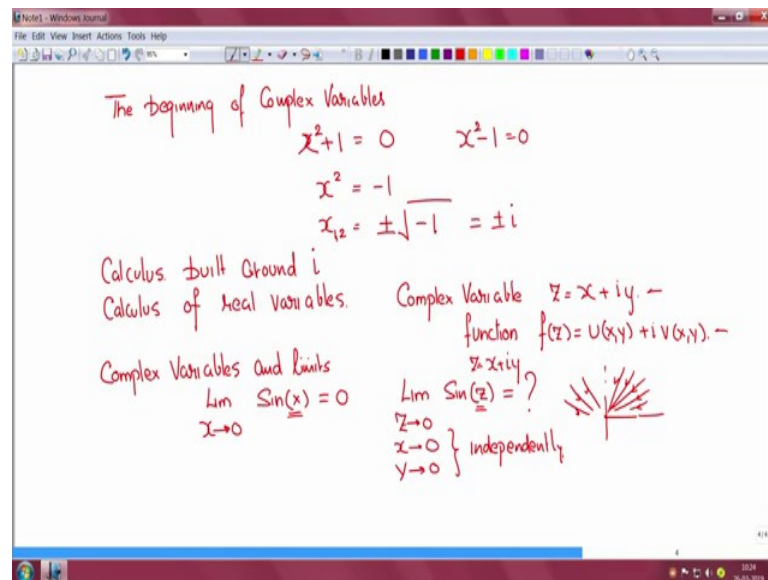 Note1 - Windows Journal
File Edit View Insert Actions Tools Help
The beginning of Complex Variables
x²+1 = 0 x²-1=0
x² = -1
x₁₂ = ±√-1 = ±i
Calculus built around i
Calculus of real variables.
Complex Variable z = x + iy. -
function f(z) = U(x,y) + i V(x,y). -
z=x+iy
Complex Variables and limits
Lim Sin(x) = 0
x→0
Lim Sin(z) = ?
z→0
x→0
y→0 } independently
4/4
4
10:24